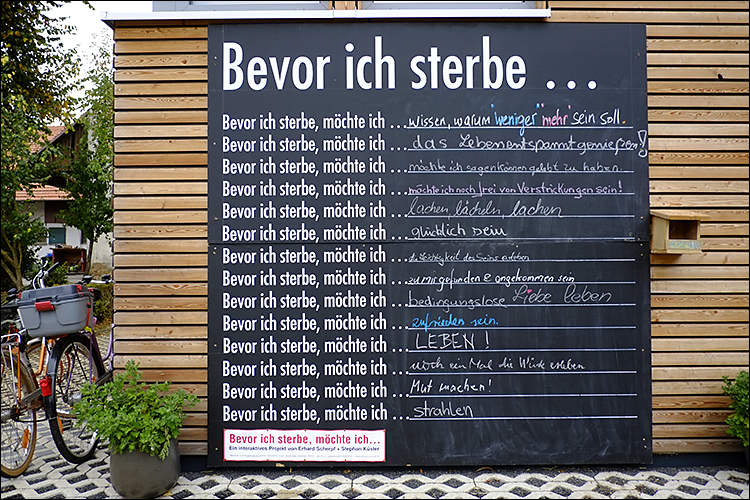 Bevor ich sterbe ...
Bevor ich sterbe, möchte ich ... wissen, warum "weniger" "mehr" sein soll.
Bevor ich sterbe, möchte ich ... das Leben entspannt genießen!
Bevor ich sterbe, möchte ich ... möchte ich sagen können gelebt zu haben.
Bevor ich sterbe, möchte ich ... möchte ich noch frei von Verstrickungen sein!
Bevor ich sterbe, möchte ich ... lachen, lächeln, lachen
Bevor ich sterbe, möchte ich ... glücklich sein
Bevor ich sterbe, möchte ich ... die Leichtigkeit des Seins erleben
Bevor ich sterbe, möchte ich ... zu mir gefunden & angekommen sein
Bevor ich sterbe, möchte ich ... bedingungslose Liebe leben
Bevor ich sterbe, möchte ich ... zufrieden sein.
Bevor ich sterbe, möchte ich ... LEBEN!
Bevor ich sterbe, möchte ich ... noch ein Mal die erleben
Bevor ich sterbe, möchte ich ... Mut machen!
Bevor ich sterbe, möchte ich ... strahlen
Bevor ich sterbe, möchte ich...
Ein interaktives Projekt von Erhard Scherpf + Stephan Küster